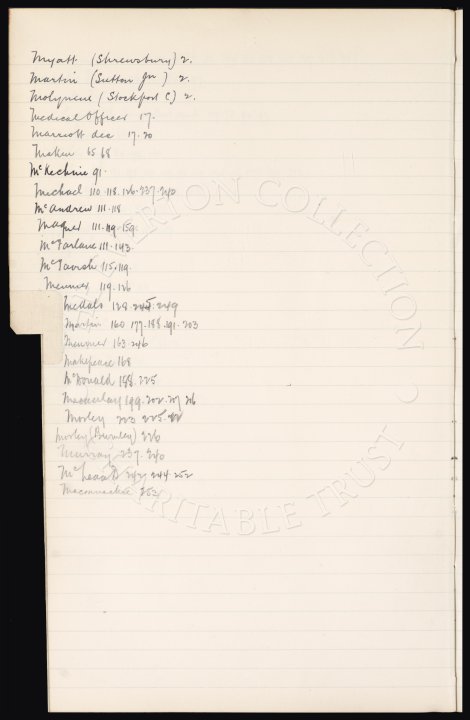 Myatt (Shrewsbury) 2.
Martin (Sutton Jn) 2.
Molyneux (Stockport C) 2.
Medical Officer 17.
Marriott dec 17.20
Maken 65 68
McKechnie 91.
Michael 110.118.126.237.240
McAndrew 111.118
Magner 111.119.159
McFarlane 111.143
McTavish 115.119
Meunier 119.126
Medals 128.245.249
Martin 160 177.188.191.203
Meunier 163.246
Makepeace 168
McDonald 188.225
Mackerlay 199.202.207
Morley 223 225.
Morley (Burnley) 226
Murray 237.240
McLeod 242 244.252
Maconnachie 252
EVERTON COLLECTION
CHARITABLE TRUST